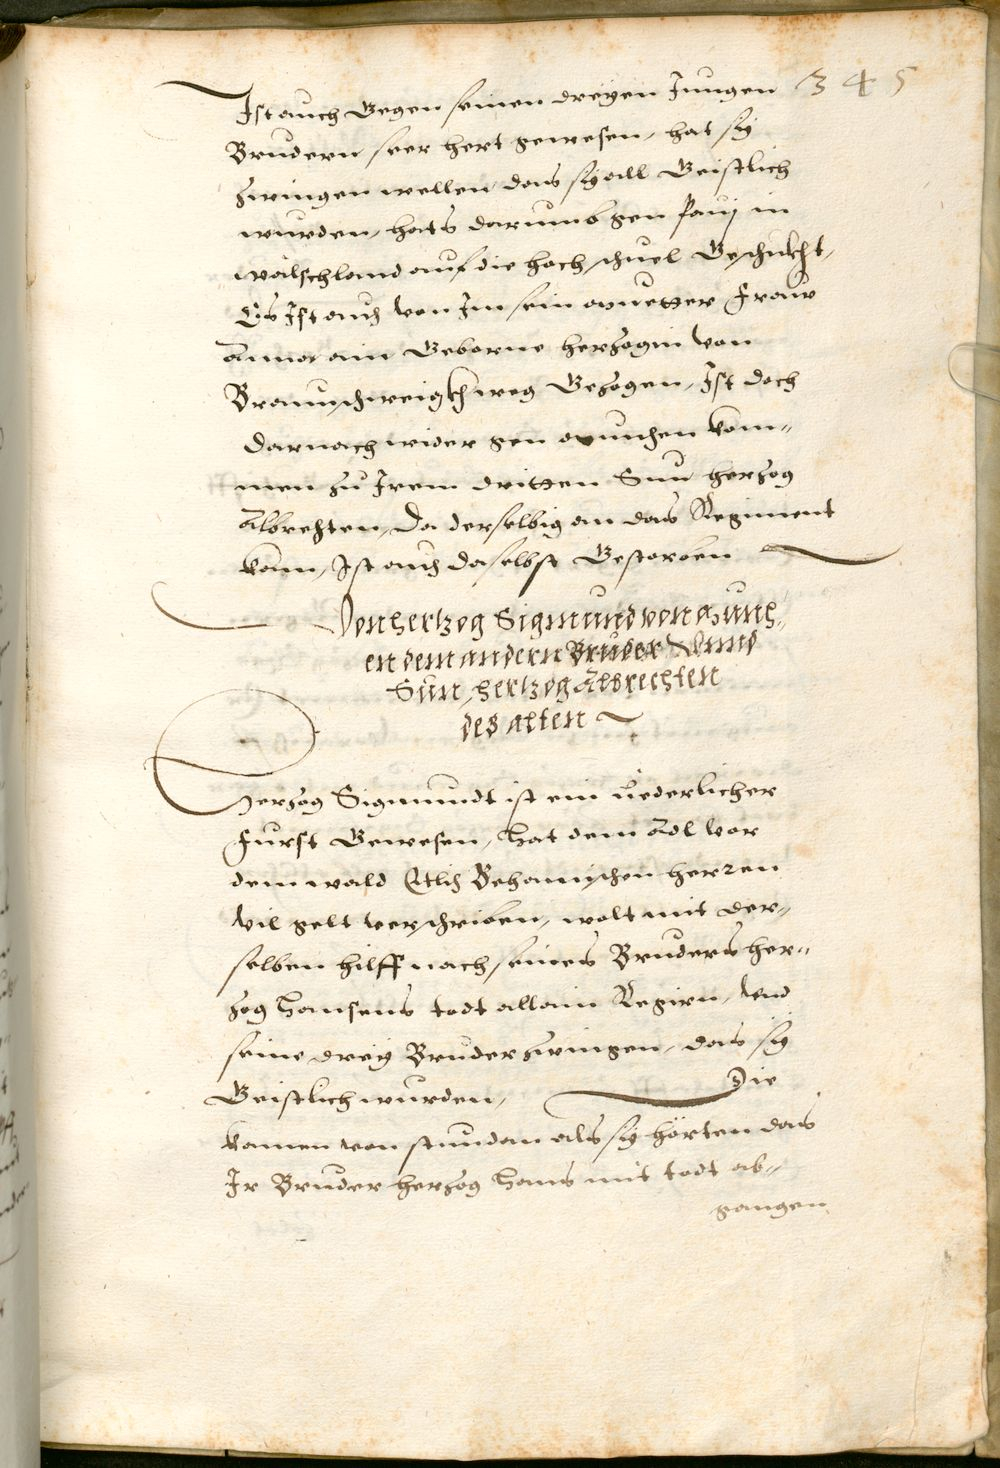 345
Ist auch Gegen seinen dreÿen Jungen
Brudern seer hert gewesen, hat sÿ
zwingen wellen das sÿ all Geistlich
wurden, hats darumb gen Pavj in
walschland auf die hoch schuel Geschickht,
Es Ist auch von Im sein muetter Fraw
Anna ain Geborne hertzogin von
Braunschweigkh weg Getzogen, Ist doch
darnach wider gen munchen kom-
men zu Irem dritten Sun hertzog
Albrechten, Da derselbig an das Regiment
kam, Ist auch daselbst Gestorben
Von hertzog Sigmund von Munch-
en dem andern Bruder Vnnd
Sun, hertzog Albrechten
des alten
Hertzog Sigmundt ist ein liederlicher
Furst Gewesen, Hat dem Adl vor
dem wald Etlich Behamischen herren
vil gelt verschriben, wolt mit der-
selben hilff nach seines Bruders her-
tzog Hansens todt allain Regirn, Vnd
seine dreÿ Bruder zwingen, das sÿ
Geistlich wurden, Die
kamen von stundan als sÿ hörten das
Ir Bruder hertzog Hans mit todt ab-
gangen